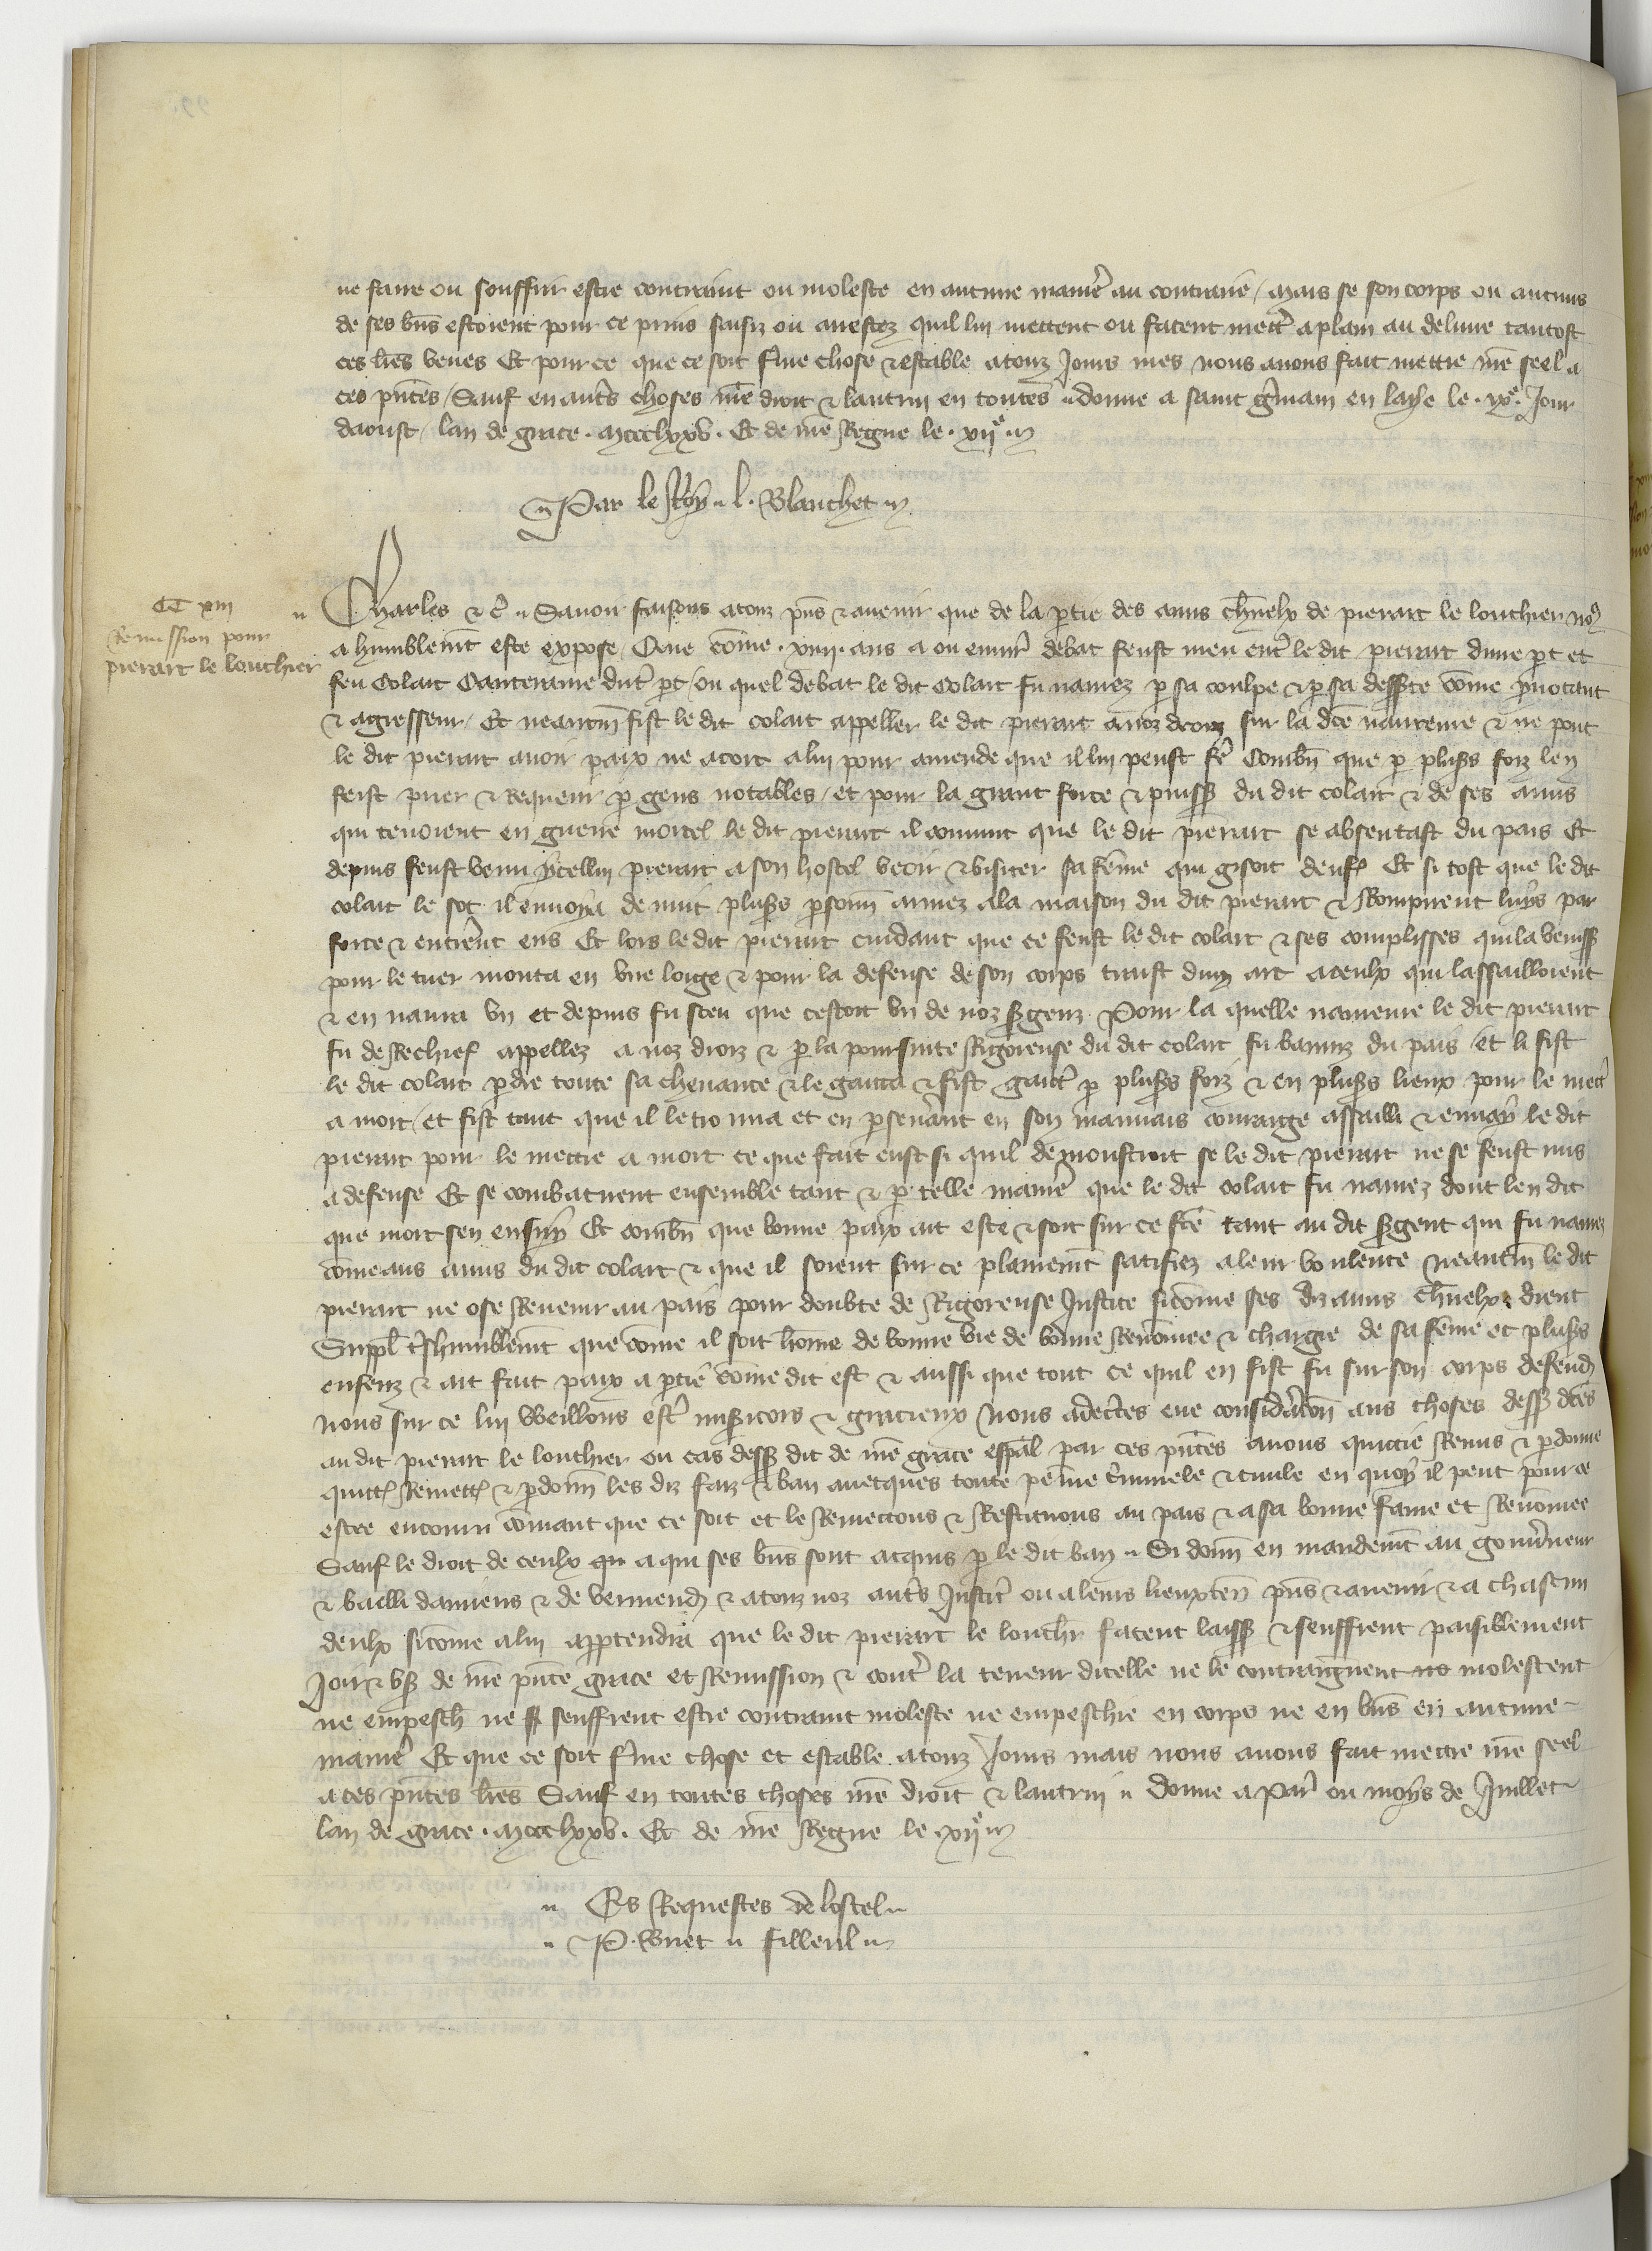 ne faire ou souffrir estre contraint ou moleste en aucune maniere au contraire / Mais se son corps ou aucuns
de ses bns estoient pour ce prins saisiz ou arrestez quil lui mettent ou facent mettr a plain au delivre tantost
ces lres veues Et pour ce que ce soit ferme chose & estable a touz Jours mes nous avons fait mettre nre seel a
ces pntes / Sauf en autrs choses nre droit & lautrui en toutes donne a saint germain en laye le . xxe . Jour
daoust / lan de grace . mccclxxv . Et de nre Regne le . xije .
Par le Roy l . Blanchet
CC xiii
Remission pour
pierart le louchier
Charles & c Savoir faisons a touz pns & avenir que de la ptie des amis charnelx de pierart le louchier no9
a humblemt este expose / Que come . xiiii . ans a ou environ debat feust meu entr le dit pierart dune pt et
feu Colart Canteraine dautr pt / ou quel debat le dit Colart fu navrez p sa coulpe & p sa desserte come provocant
& agresseur / Et neantm fist le dit colart appeller le dit pierart a noz droiz sur la dce navreure & ne pout
le dit pierart avoir paix ne acort a lui pour amende que il lui peust fe Combn que p pluss foiz len
feist prier & Requerir p gens notables / et pour la grant force & puiss du dit colart & de ses amis
qui tenoient en guerre mortel le dit pierart il convint que le dit pierart se absentast du pais Et
depuis feust venu ycellui pierart a son hostel veoir & visiter sa feme qui gisoit denf Et si tost que le dit
colart le sot il envoya de nuit pluss psonn armez a la maison du dit pierart & Rompirent luys par
force & entrerent ens Et lors le dit pierart cuidant que ce feust le dit colart & ses complisses qui la veniss
pour le tuer monta en une loige & pour la defense de son corps traist dun arc a ceulx qui lassailloient
& en navra un et depuis fu sceu que cestoit un de noz sergenz Pour la quelle navreure le dit pierart
fu de Rechief appellez a noz droiz & p la poursuite Rigoreuse du dit colart fu baniz du pais / et li fist
le dit colart pdre toute sa chevance & le gaita & fist gaitr p pluss foiz & en pluss lieux pour le mettr
a mort / et fist tant que il le trouva et en pseverant en son mauvais courage assailli & envay le dit
pierart pour le mettre a mort ce que fait eust si quil demonstroit se le dit pierart ne se feust mis
a defense Et se combatirent ensemble tant & p telle manie que le dit colart fu navrez dont len dit
que mort sen ensuy Et combn que bonne paix ait este & soit sur ce fte tant au dit sergent qui fu navrez
come aus amis du dit colart & que il soient sur ce plainemt satifiez a leur voulente neantm le dit
pierart ne ose Revenir au pais pour doubte de Rigoreuse Justice sicome ses diz amis charnelx dient
Suppl treshumblemt que come il soit home de bonne vie de bonne Renomee & chargie de sa feme et pluss
enfenz & ait fait paix a ptie come dit est & aussi que tout ce quil en fist fu sur son corps defend
nous sur ce lui weillons estr misericors & gracieux Nous adectes eue consideracon aus choses dess dces
au dit pierart le louchier ou cas dess dit de nre grace espal par ces pntes avons quittie Remis & pdonne
quitt Remett & pdonn les diz faiz & ban avecques toute peine criminele & civile en quoy il peut pour ce
estre encouru comant que ce soit et le Remettons & Restituons au pais & a sa bonne fame et Renomee
Sauf le droit de ceulx a qui ses bns sont acquis p le dit ban Si donn en mandemt au gouverneur
& bailli damiens & de vermend & a touz noz autrs Justic ou a leurs lieuxten pns & avenir & a chascun
deulx sicome a lui apptendra que le dit pierart le louchr facent laiss & seuffrent paisiblement
Joir & us de nre pnte grace et Remission & contr la teneur dicelle ne le contraignent ne molestent
ne empesch ne seuffrent estre contraint moleste ne empeschie en corps ne en bns en aucune
manie Et que ce soit ferme chose et estable a touz Jours mais nous avons fait mettre nre seel
a ces pntes lres Sauf en toutes choses nre droit & lautrui Donne a Par ou moys de Juillet
lan de grace . mccclxxv . Et de nre Regne le . xije
Es Requestes de lostel
P . Vivet filleul